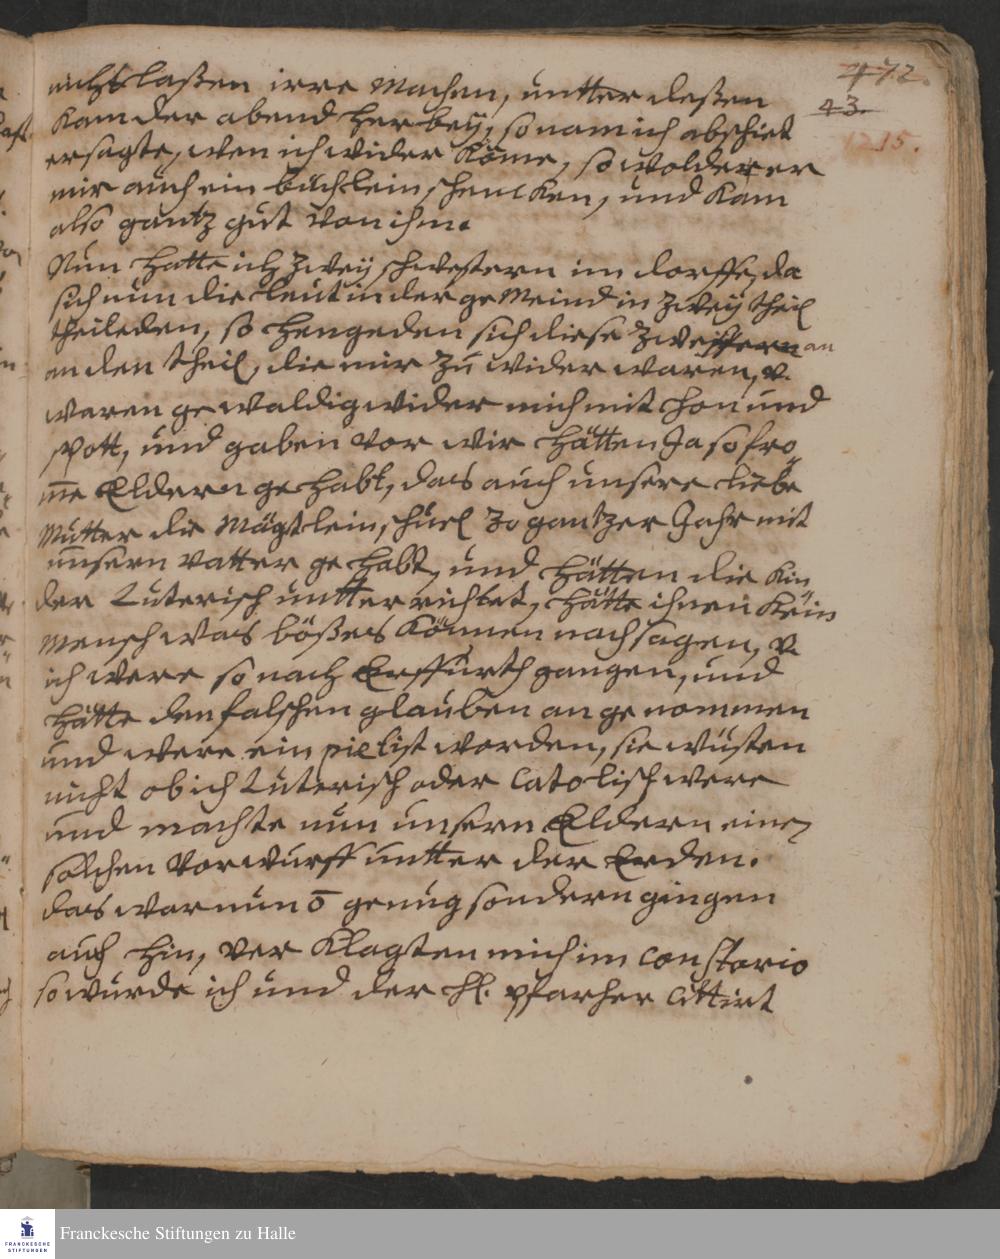 472.
43.
1215.
nicht laßen irre machen, untter deßen
kam der abend herbey, so nam ich abschiet
er sagte, wen ich wider köme, so wolde er
mir auch ein büchlein schencken, und kam
also gantz gut von ihm.
Nun hatte ich zwey schwestern im dorffe, da
sich nun die leut in der gemeind in zwey theil
theileden, so hengeden sich diese zwey an
an den theil, die mir zu wider waren, v.
waren gewaldig wider mich mit hon und
spott, und gaben vor wir hätten Ja so fro
me Eldern gehabt, das auch unsere liebe
Mutter die Mägtlein schuel 30 gantzer Jahr mit
unsern vatter gehabt, und hätten die kin
der Luterisch untterrichtet, hätte ihnen kein
mensch was bößes können nach sagen, v
ich were so nach Erffurth gangen, und
hätte den falschen glauben an genommen
und were ein pietist worden, sie wüsten
nicht ob ich Luterisch oder Catolisch were
und machte nun unsern Eldern einen
solchen vorwurff untter der Erden.
das war nun ō genug sondern gingen
auch hin, ver klagten mich im Constorio
so wurde ich und der H. pfarher Cittirt
Franckesche Stiftungen zu Halle
FRANCKESCHE
STIFTUNGEN